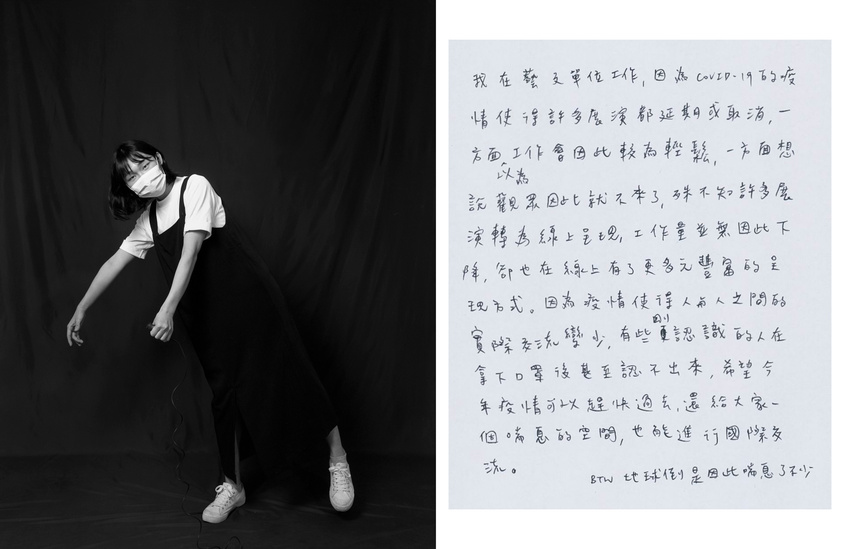 我在藝文單位工作,因為COVID-19的疫
情使得許多展演都延期或取消,一
方面以為工作會因此較為輕鬆,一方面想
說觀眾因此就不來了,殊不知許多展
演轉為線上呈現,工作量並無因此下
降,卻也在線上有了更多元豐富的呈
現方式。因為疫情使得人與人之間的
實際交流變少,有些剛認識的人在
拿下口罩後甚至認不出來,希望今
年疫情可以趕快過去,還給大家一
個喘息的空間,也能進行國際交
流。
BTW 地球倒是因此喘息了不少